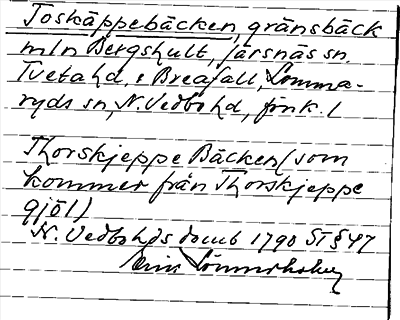 Toskäppebäcken, gränsbäck
mln Bergshult, Järsnäs sn,
Tveta hd, o Breafall, Lomma-
ryds sn, N. Vedbo hd, Jönk. l
Thorskjeppe Bäcken (som
kommer från Thorskjeppe
gjöl)
N. Vedbo hds domb 1790 ST § 47
Erik